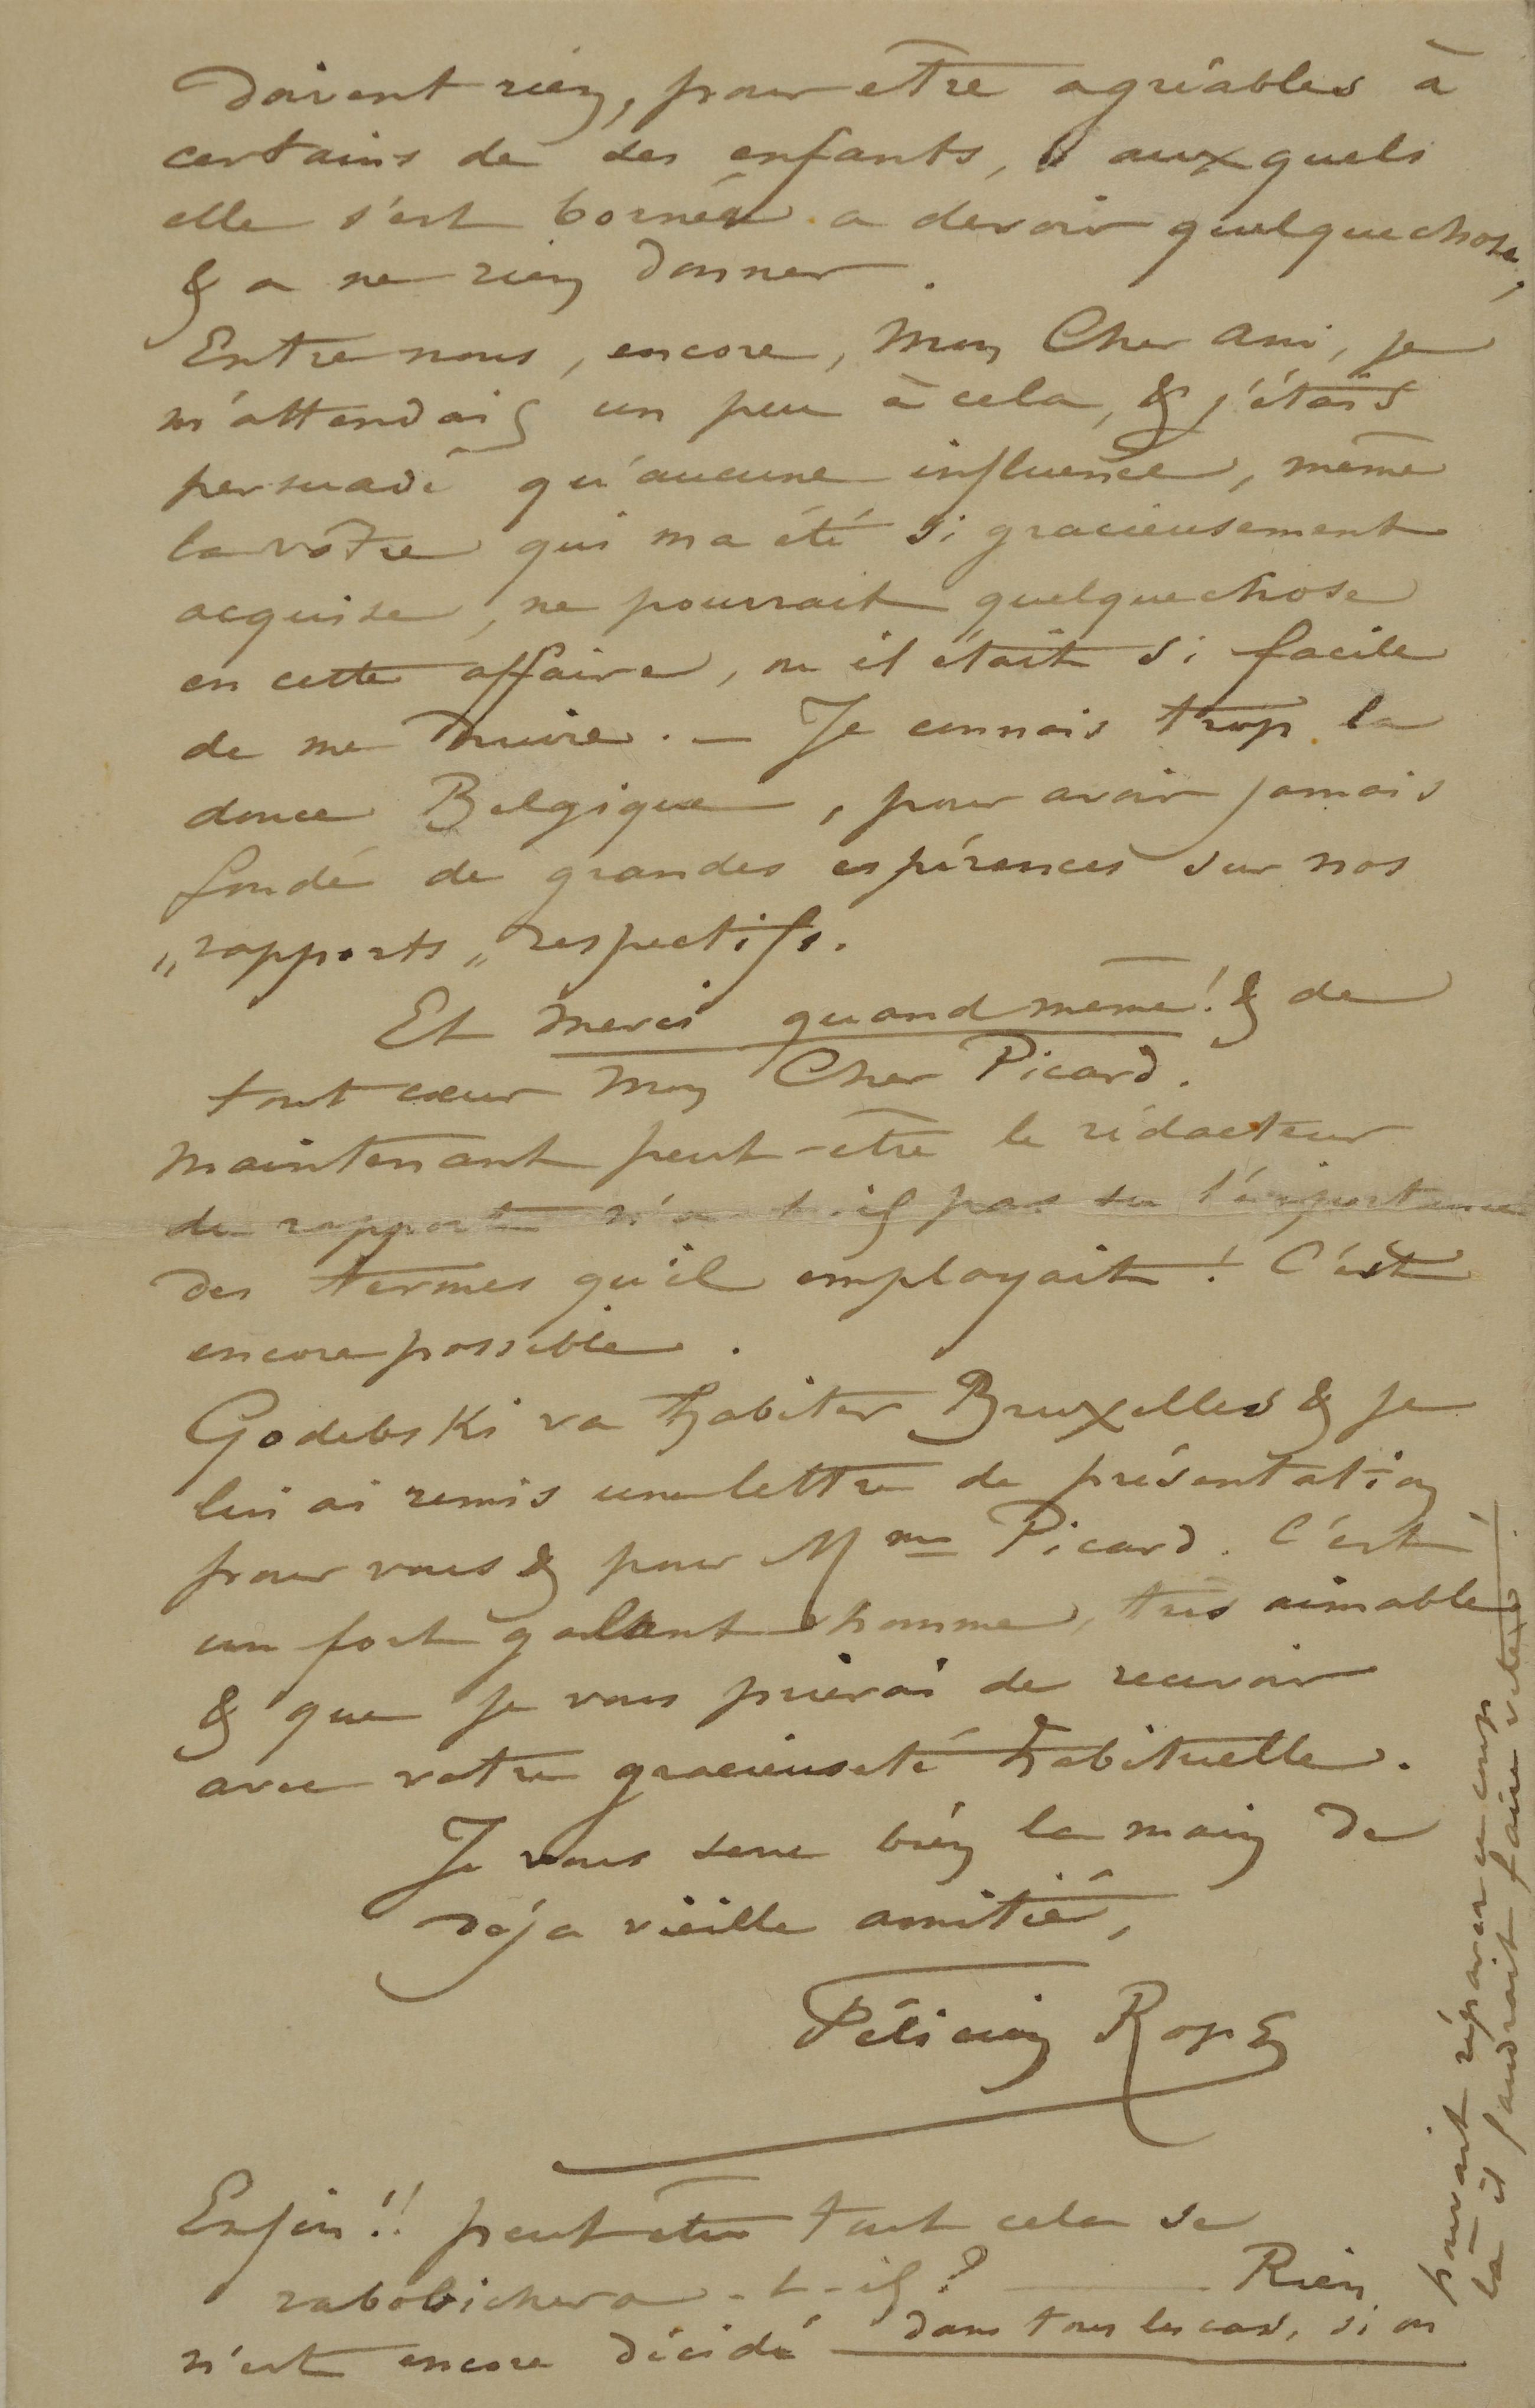 doivent rien, pour etre agréables à
certains de ses enfants, auxquels
elle s'est bornée a devoir quelquechose,
& a ne rien donner.
Entre nous, encore, Mon Cher Ami, je
m'attendais un peu à cela, & j'étais
persuadé qu'aucune influence, même
la vôtre qui m'a été si gracieusement
acquise, ne pourrait quelquechose
en cette affaire, ou il était si facile
de me nuire. — Je connais trop la
douce Belgique, pour avoir jamais
fondé de grandes espérences sur nos
„rapports„ respectifs.
Et merci quand même! & de
tout cœur Mon Cher Picard.
Maintenant peut-être le rédacteur
du rapport n'a-t-il pas su l'importance
des termes qu'il employait! C'est
encore possible.
Godebski va habiter Bruxelles & je
lui ai remis une lettre de présentation
pour vous & pour Mme Picard. C'est
un fort galant homme, très aimable
& que je vous prierai de recevoir
avec votre gracieuseté habituelle.
Je vous serre bien la main de
déja vieille amitié,
Félicien Rops
Enfin!! peut être tout cela se
rabobichera-t-il? — Rien
n'est encore décidé — dans tous les cas, si on
pouvait réparer ce coup
là il faudrait faire vite!